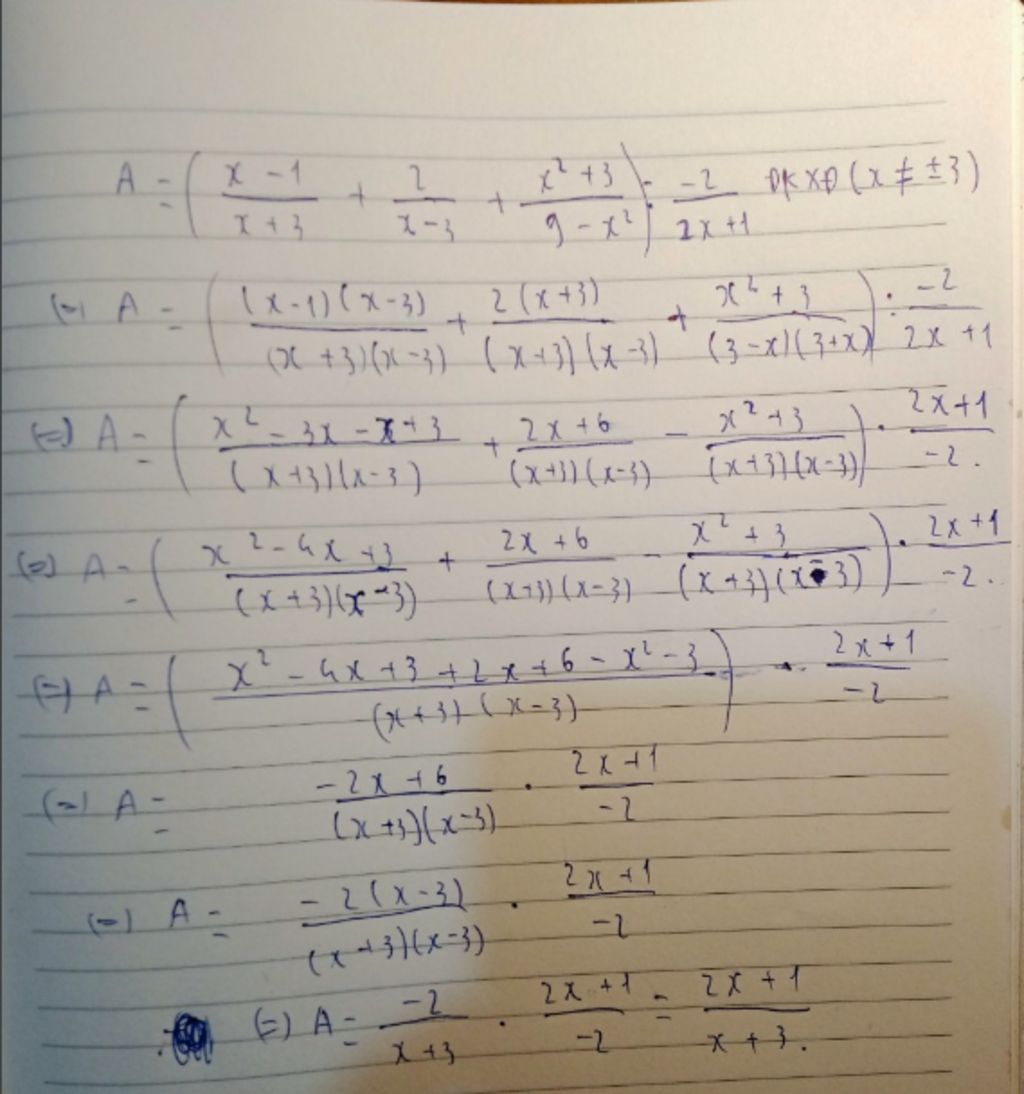 A = ( (x - 1)/(x + 3) + 2/(x - 3) + (x² + 3)/(9 - x²) ) : -2/(2x + 1) ĐKXĐ (x ≠ ±3)
(=) A = ( (x-1)(x-3)/(x+3)(x-3) + 2(x+3)/(x+3)(x-3) + (x² + 3)/(3-x)(3+x) ) : -2/(2x + 1)
(=) A = ( (x² - 3x - x + 3)/(x+3)(x-3) + (2x + 6)/(x+3)(x-3) - (x² + 3)/(x+3)(x-3) ) . (2x+1)/-2.
(=) A = ( (x² - 4x + 3)/(x+3)(x-3) + (2x + 6)/(x+3)(x-3) - (x² + 3)/(x+3)(x-3) ) . (2x+1)/-2.
(=) A = ( (x² - 4x + 3 + 2x + 6 - x² - 3)/(x+3)(x-3) ) . (2x+1)/-2
(=) A = (-2x + 6)/(x+3)(x-3) . (2x+1)/-2
(=) A = -2(x-3)/(x+3)(x-3) . (2x+1)/-2
(=) A = -2/(x+3) . (2x+1)/-2 = (2x+1)/(x+3).